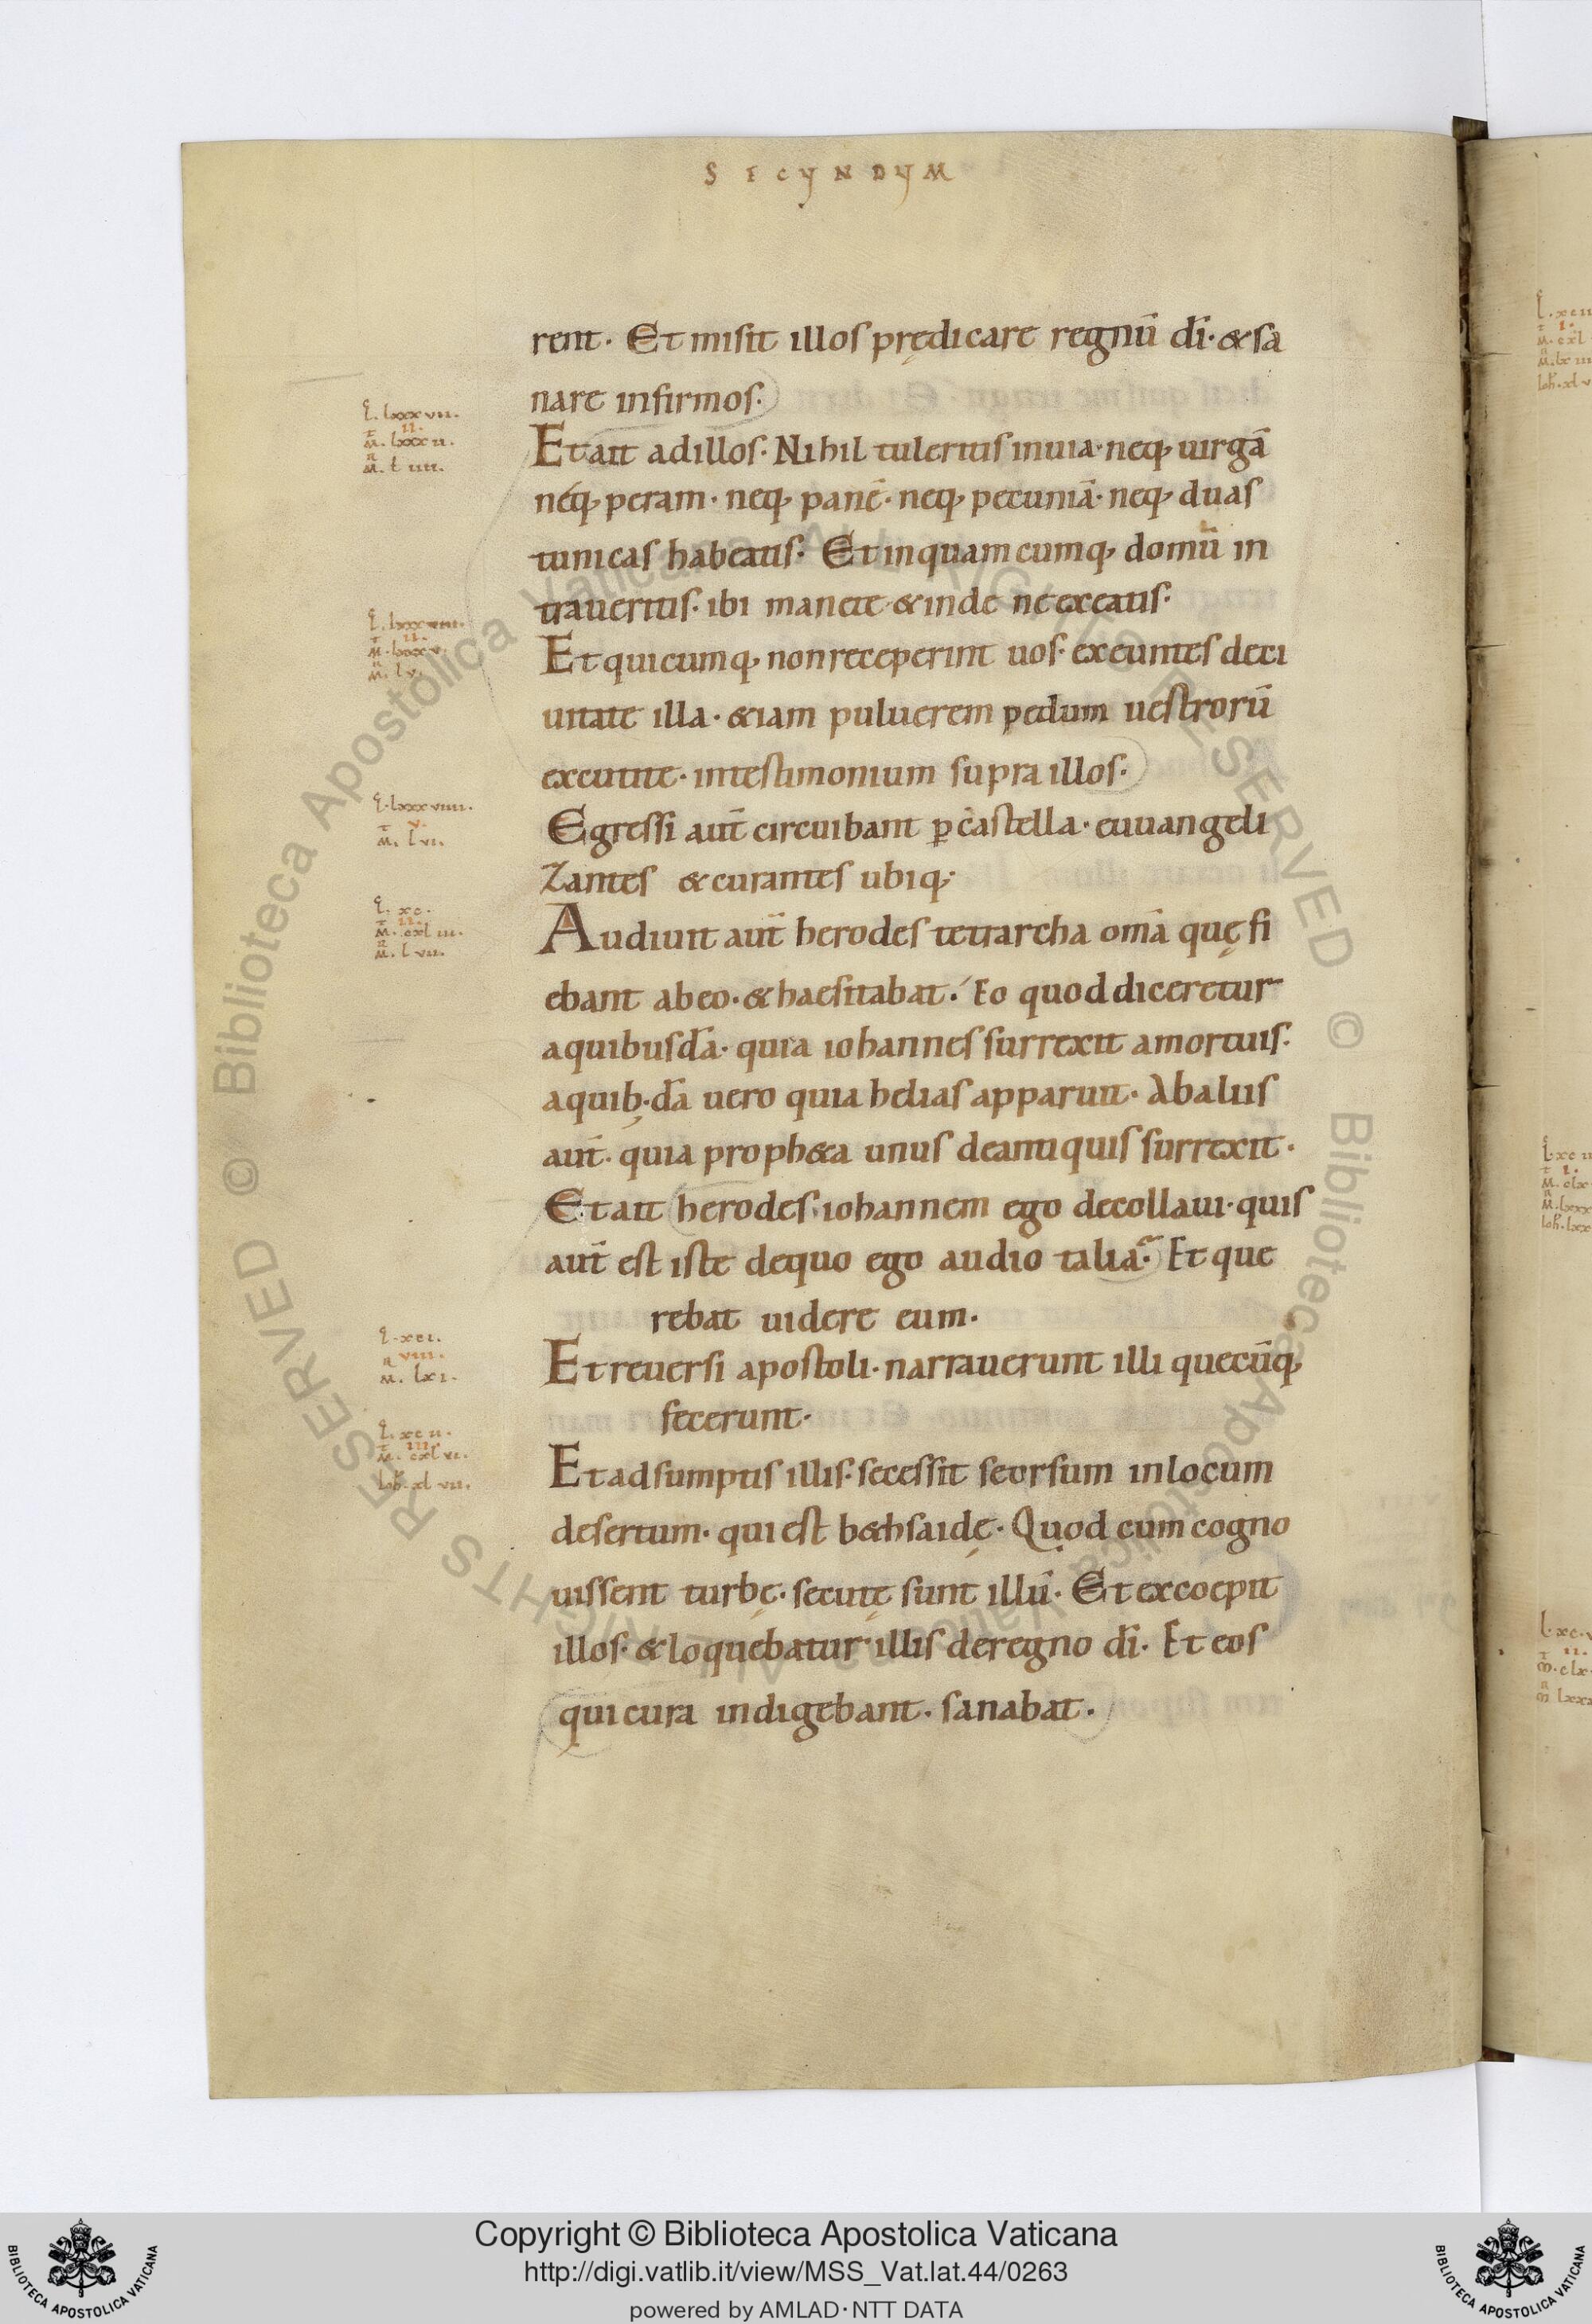 SECUNDUM
rent. Et misit illos prędicare regnū dī. & sa
nare infirmos.
Et ait ad illos. Nihil tuleritis in uia. neq; uirgā
neq; peram. neq; panē. neq; pecuniā. neq; duas
tunicas habeatis. Et in quamcumq; domū in
traueritis. ibi manete & inde ne exeatis.
Et quicumq; non receperint uos. exeuntes de ci
uitate illa. &iam puluerem pedum uestrorū
excutite. in testimonium supra illos.
Egressi aut̄ circuibant ꝑ castella. euuangeli
zantes & curantes ubiq;
Audiuit aut̄ herodes tetrarcha om̄a quę fi
ebant ab eo. & haesitabat. Eo quod diceretur
a quibusdā. quia iohannes surrexit a mortuis.
a quib; dā uero quia helias apparuit. Ab aliis
aut̄. quia proph&a unus de antiquis surrexit.
Et ait herodes. iohannem ego decollaui. quis
aut̄ est iste de quo ego audio talia. Et que
rebat uidere eum.
Et reuersi apostoli. narrauerunt illi quecūq;
fecerunt.
Et adsumptis illis. secessit seorsum in locum
desertum. qui est b&hsaidę. Quod cum cogno
uissent turbę. secutę sunt illū. Et excoepit
illos. & loquebatur illis de regno dī. Et eos
qui cura indigebant. sanabat.
L. lxxxvii.
ii.
M. lxxxii.
M. l iiii.
L. lxxxviii.
ii.
M. lxxxv.
M. lv.
L. lxxxviiii.
v.
M. lvi.
L. xc.
ii.
M. cxliii.
M. lvii.
L. xci.
viii.
M. lxi.
L. xcii.
iii.
M. cxlvi.
Ioh. xlvii.
Copyright © Biblioteca Apostolica Vaticana
http://digi.vatlib.it/view/MSS_Vat.lat.44/0263
powered by AMLAD·NTT DATA
BIBLIOTECA APOSTOLICA VATICANA
BIBLIOTECA APOSTOLICA VATICANA